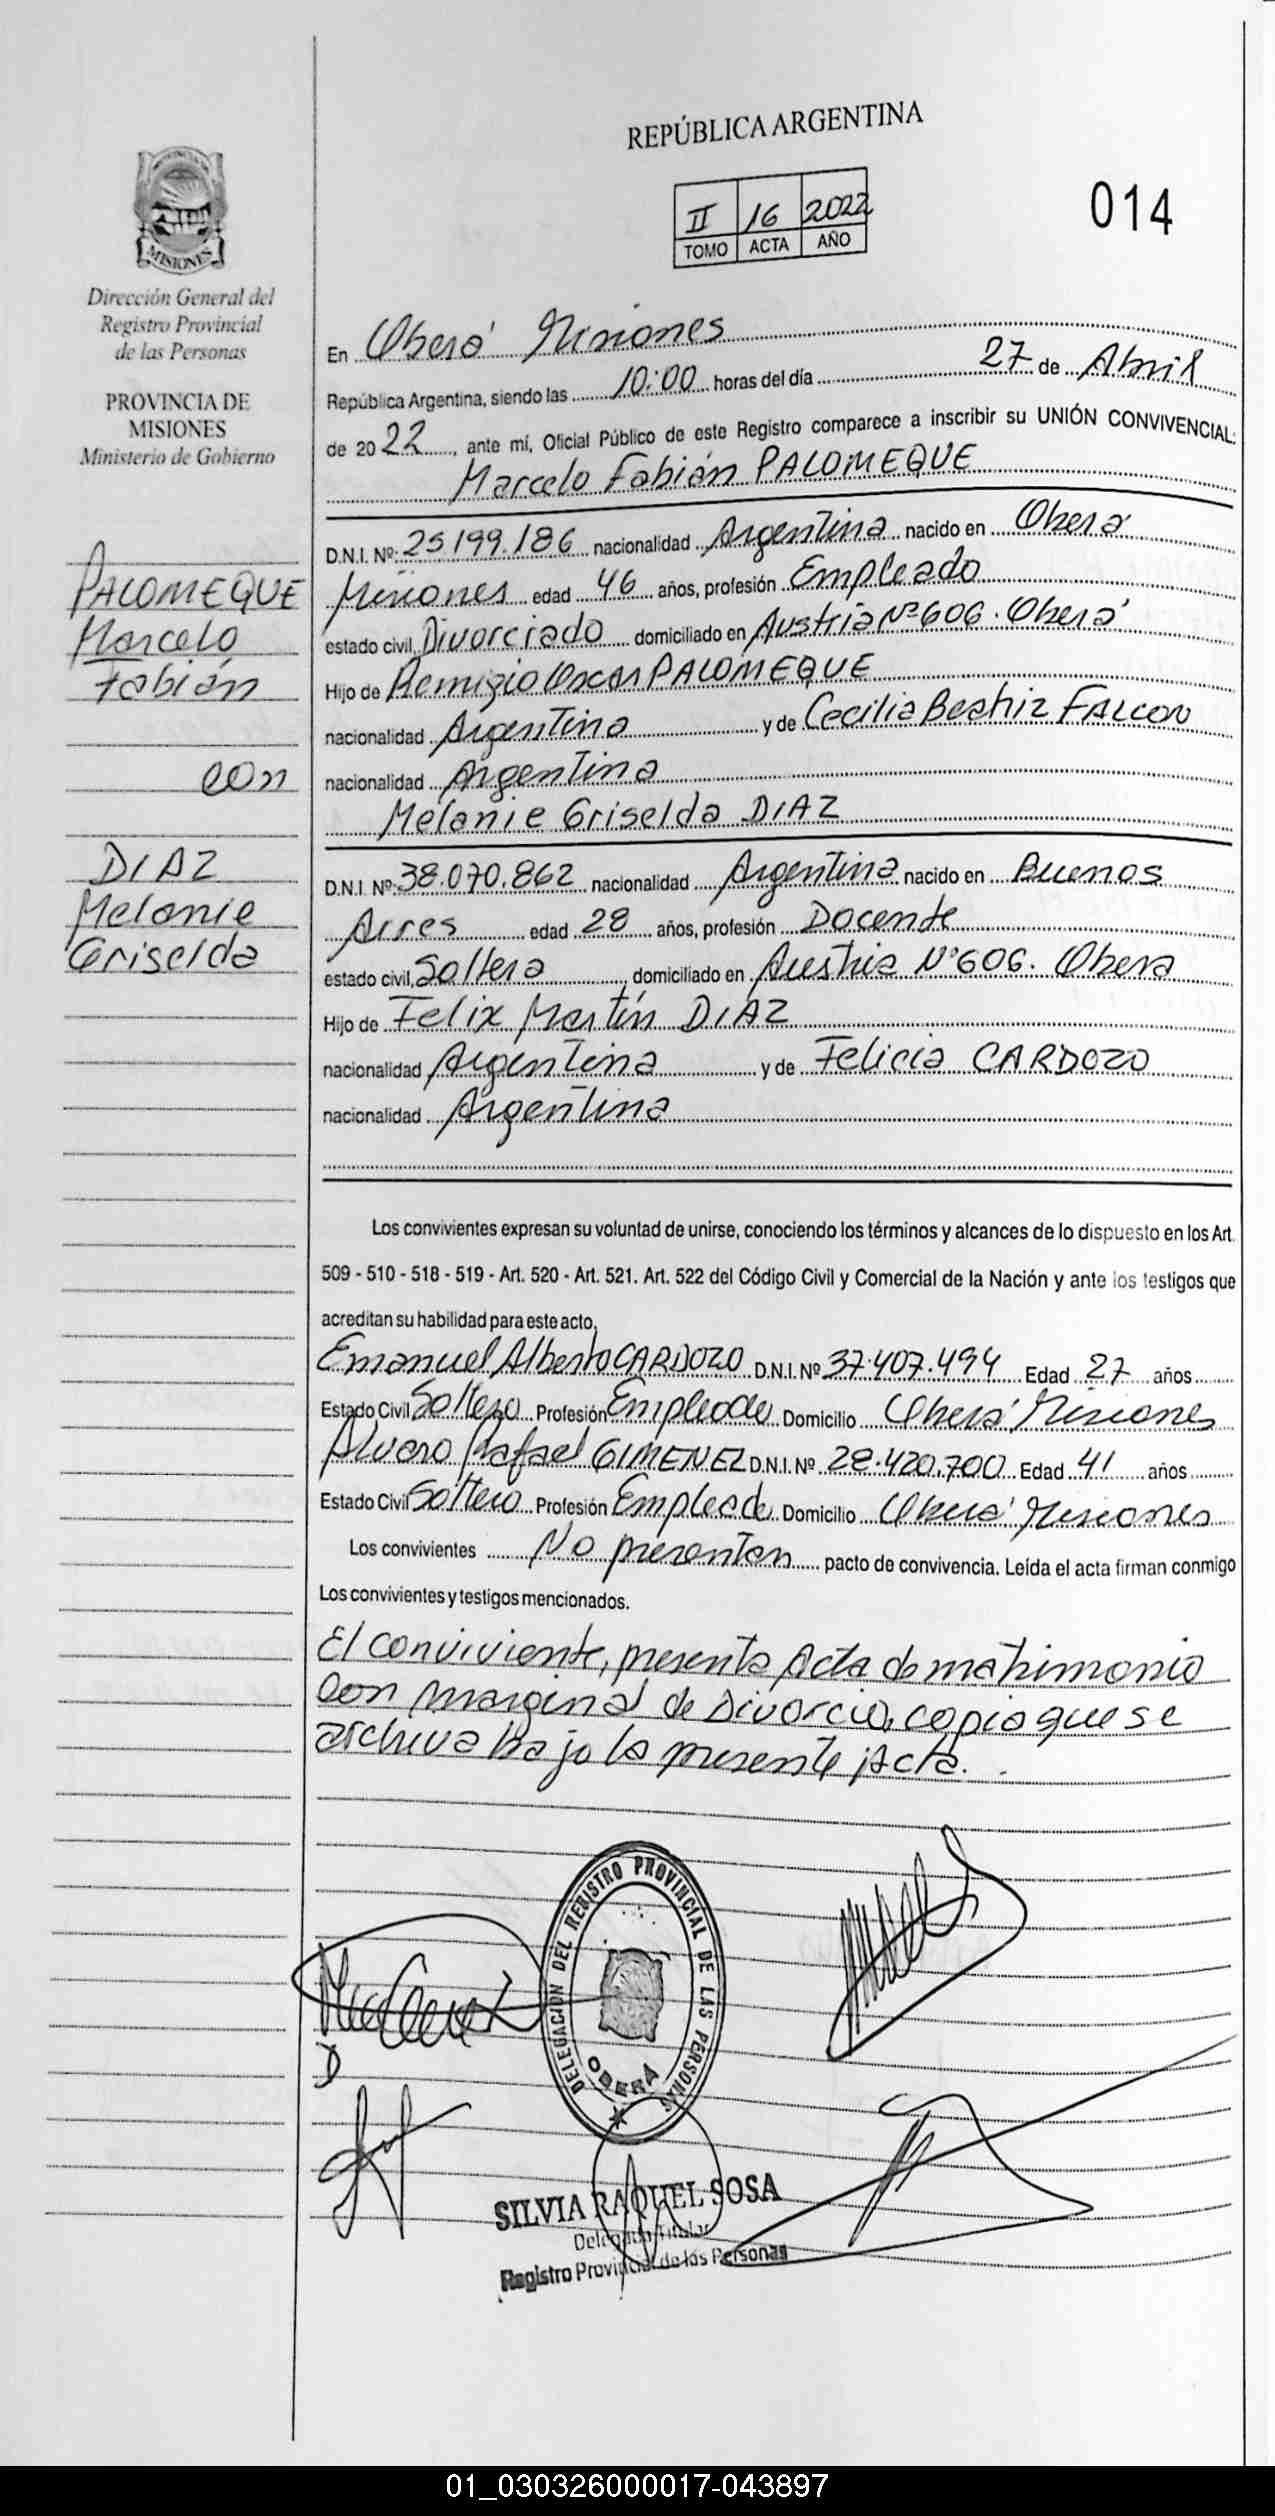 REPÚBLICA ARGENTINA
II 16 2022
TOMO ACTA AÑO
014
MISIONES
Dirección General del
Registro Provincial
de las Personas
PROVINCIA DE
MISIONES
Ministerio de Gobierno
PALOMEQUE
Marcelo
Fabián
con
DIAZ
Melanie
Griselda
En Oberá Misiones
República Argentina, siendo las 10:00 horas del día 27 de Abril
de 2022, ante mí, Oficial Público de este Registro comparece a inscribir su UNIÓN CONVIVENCIAL:
Marcelo Fabián PALOMEQUE
D.N.I. Nº: 25.199.186 nacionalidad Argentina nacido en Oberá
Misiones edad 46 años, profesión Empleado
estado civil, Divorciado domiciliado en Austria Nº 606. Oberá
Hijo de Remigio Oscar PALOMEQUE
nacionalidad Argentina y de Cecilia Beatriz FALCON
nacionalidad Argentina
Melanie Griselda DIAZ
D.N.I. Nº: 38.070.862 nacionalidad Argentina nacido en Buenos
Aires edad 28 años, profesión Docente
estado civil, Soltera, domiciliado en Austria Nº 606. Oberá
Hijo de Felix Martín DIAZ
nacionalidad Argentina y de Felicia CARDOZO
nacionalidad Argentina
Los convivientes expresan su voluntad de unirse, conociendo los términos y alcances de lo dispuesto en los Art.
509 - 510 - 518 - 519 - Art. 520 - Art. 521. Art. 522 del Código Civil y Comercial de la Nación y ante los testigos que
acreditan su habilidad para este acto,
Emanuel Alberto CARDOZO D.N.I. Nº 37.407.494 Edad 27 años
Estado Civil Soltero Profesión Empleado Domicilio Oberá Misiones
Alvaro Rafael GIMENEZ D.N.I. Nº 28.420.700 Edad 41 años
Estado Civil Soltero Profesión Empleado Domicilio Oberá Misiones
Los convivientes No presentan pacto de convivencia. Leída el acta firman conmigo
Los convivientes y testigos mencionados.
El conviviente, presenta Acta de matrimonio
con marginal de Divorcio, copia que se
archiva bajo la presente Acta.
DELEGACION DEL REGISTRO PROVINCIAL DE LAS PERSONAS
OBERA
SILVIA RAQUEL SOSA
Delegada Titular
Registro Provincial de las Personas
01_030326000017-043897